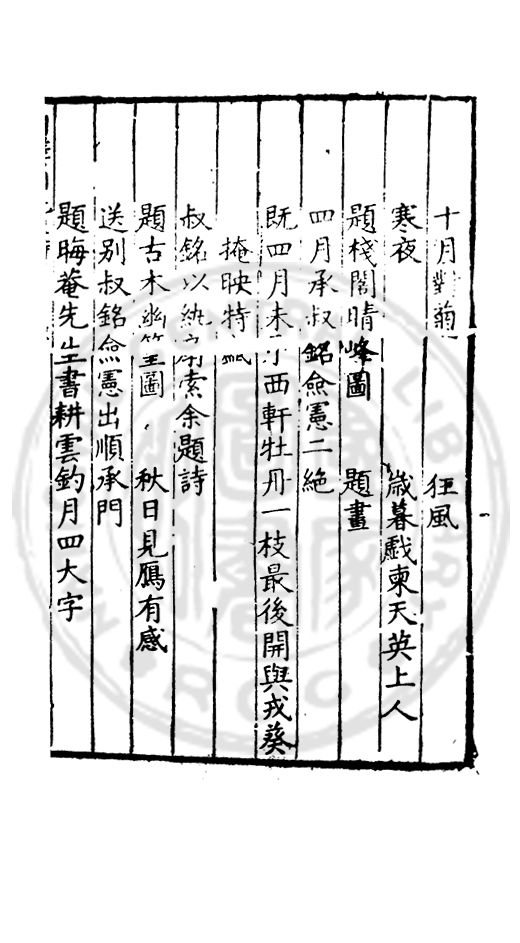 十月對菊 狂風
寒夜 歳暮戲柬天英上人
題棧閣晴峰圖 題畫
四月承叔銘僉憲二絶
既四月未 西軒牡丹一枝最後開與戎葵
掩映特
叔銘以紈扇索余題詩
題古木幽篁圖 秋日見鴈有感
送别叔銘僉憲出順承門
題晦菴先生書耕雲釣月四大字